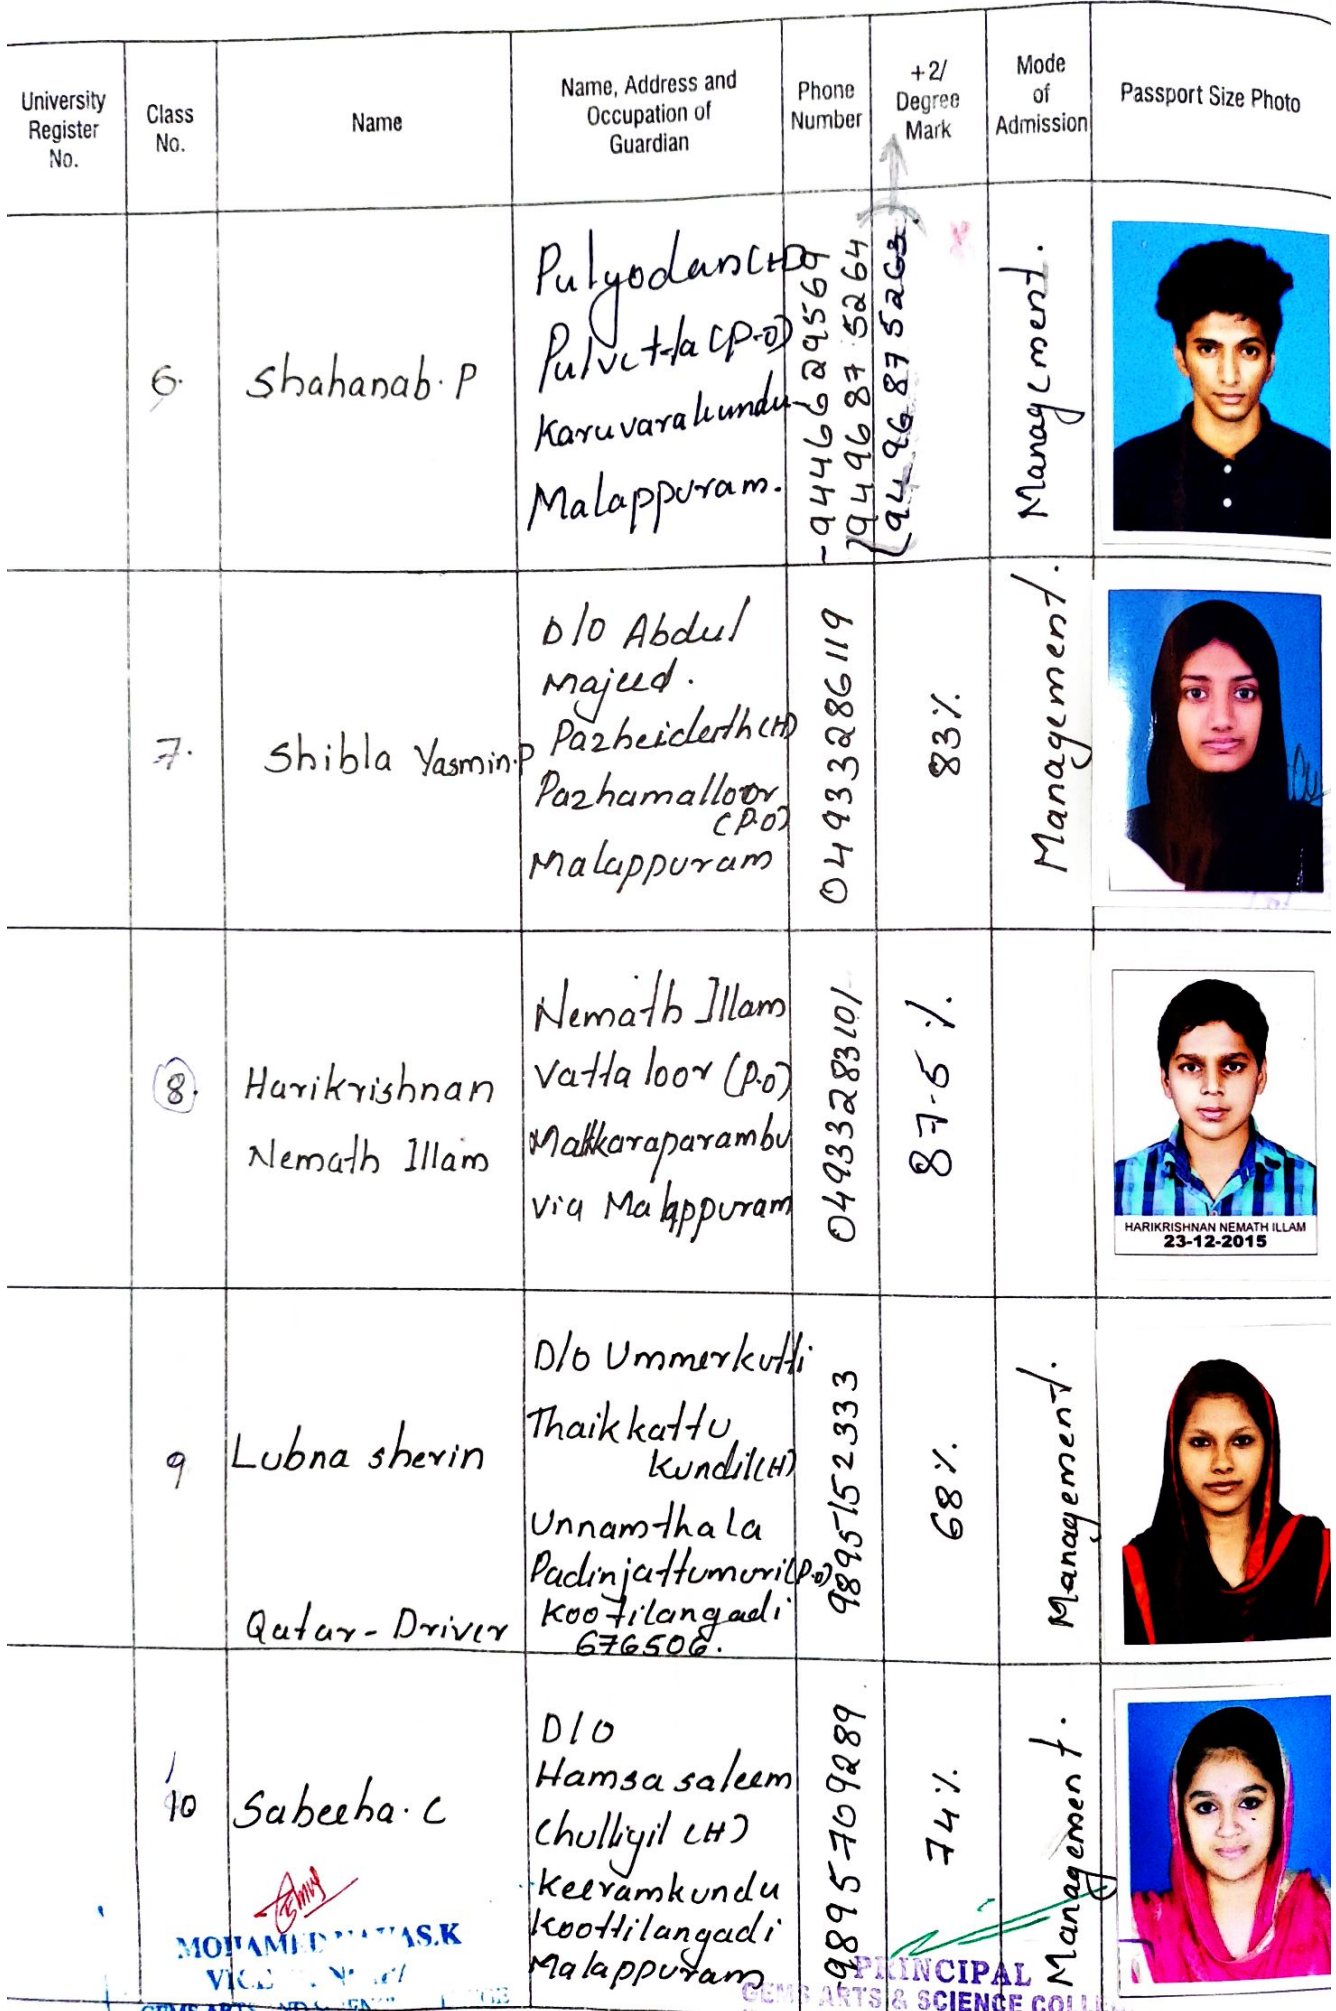 University
Register
No.
Class
No.
Name
Name, Address and
Occupation of
Guardian
Phone
Number
+2/
Degree
Mark
Mode
of
Admission
Passport Size Photo
6.
Shahanab. P
Pulvetta (P.O)
Karuvarakundu
Malappuram.
9446629569
9496875264
9496875263
Management.
7.
Shibla Yasmin.P
D/O Abdul
Majeed.
Pazhamalloor
(P.O)
Malappuram
04933286119
83%
Management.
8.
Harikrishnan
Nemath Illam
Nemath Illam
Vattaloor (P.O)
Makkaraparambu
via Malappuram
04933283101
87.5 %
HARIKRISHNAN NEMATH ILLAM
23-12-2015
9
Lubna sherin
Qatar - Driver
D/O Ummerkutti
Thaikkattu
Kundil(H)
Unnamthala
Padinjattumuri(P.O)
Koottilangadi
676506.
9895152333
68%
Management.
10
Sabeeha. C
D/O
Hamsa saleem
Chulliyil (H)
Keeramkundu
Koottilangadi
Malappuram
9895709289
74%
Management.
MOHAMED
AS.K
PRINCIPAL
GEMS ARTS & SCIENCE